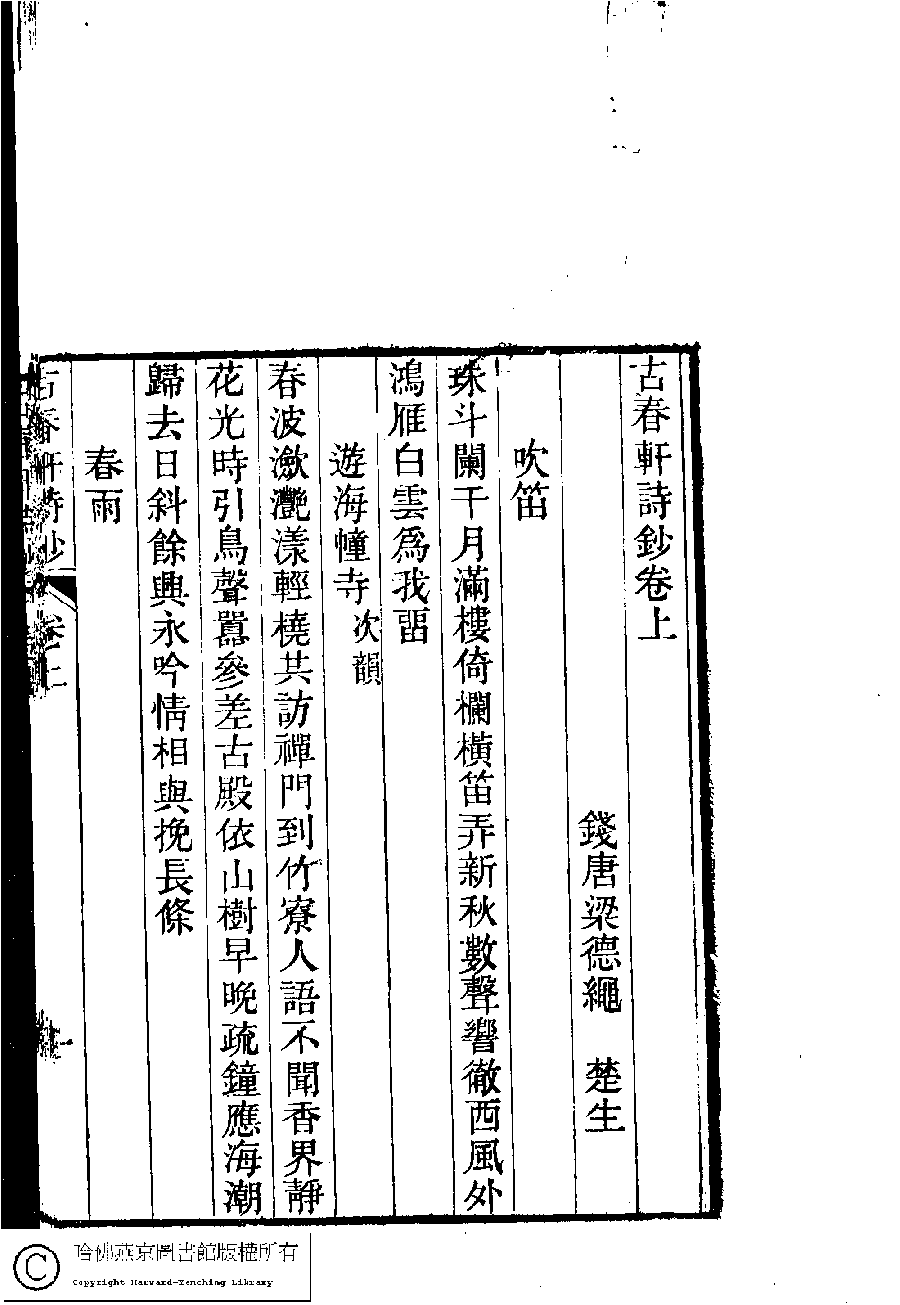 古春軒詩鈔卷上
錢唐梁德繩 楚生
吹笛
珠斗闌干月滿樓倚欄橫笛弄新秋數聲響徹西風外
鴻雁白雲爲我畱
遊海幢寺次韻
春波瀲灔漾輕橈共訪禪門到竹寮人語不聞香界靜
花光時引鳥聲嚻參差古殿依山樹早晚疏鐘應海潮
歸去日斜餘興永吟情相與挽長條
春雨
古春軒詩鈔 卷上 一
哈佛燕京圖書館版權所有
Copyright Harvard-Yenching Library